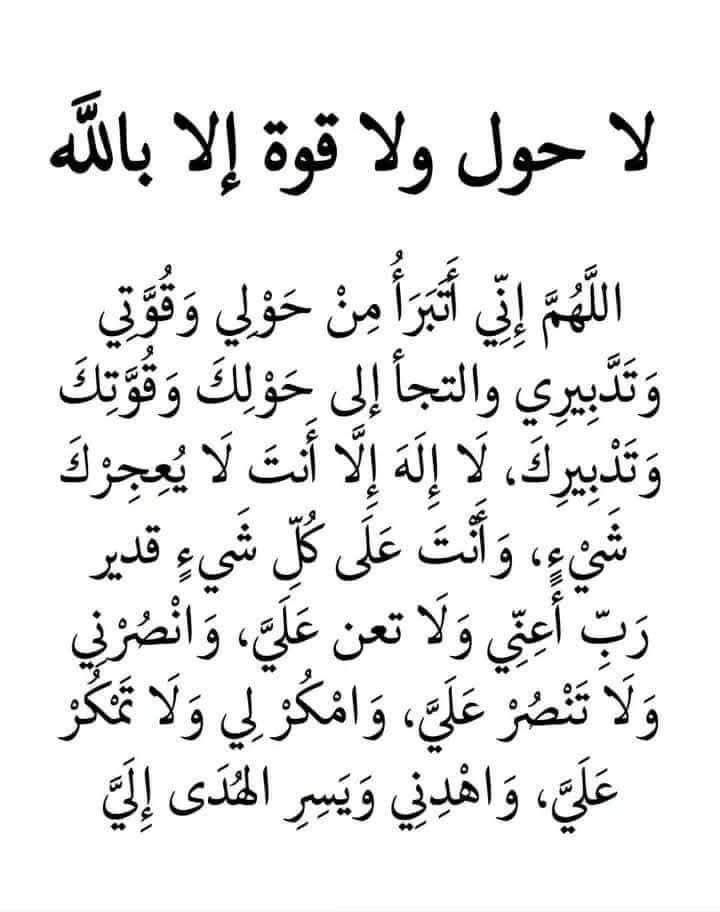 لا حول ولا قوة إلا باللَّه
اللَّهُمَّ إِنِّي أَتَبَرَأُ مِنْ حَوْلِي وَقُوَّتِي
وَتَدَّبِيرِي والتجأ إلى حَوْلِكَ وَقُوَّتِكَ
وَتَدْبِيرِكَ، لَا إِلَهَ إِلَّا أَنتَ لَا يُعِجِرْكَ
شَيْءٍ، وَأَنْتَ عَلَى كُلِّ شَيءٍ قدير
رَبِّ أَعِنِّي وَلَا تعن عَلَيَّ، وَانْصُرْنِي
وَلَا تَنْصُرْ عَلَيَّ، وَامْكُرْ لِي وَلَا تَمْكُرْ
عَلَيَّ، وَاهْدِنِي وَيَسِرِ الهُدَى إِلَيَّ